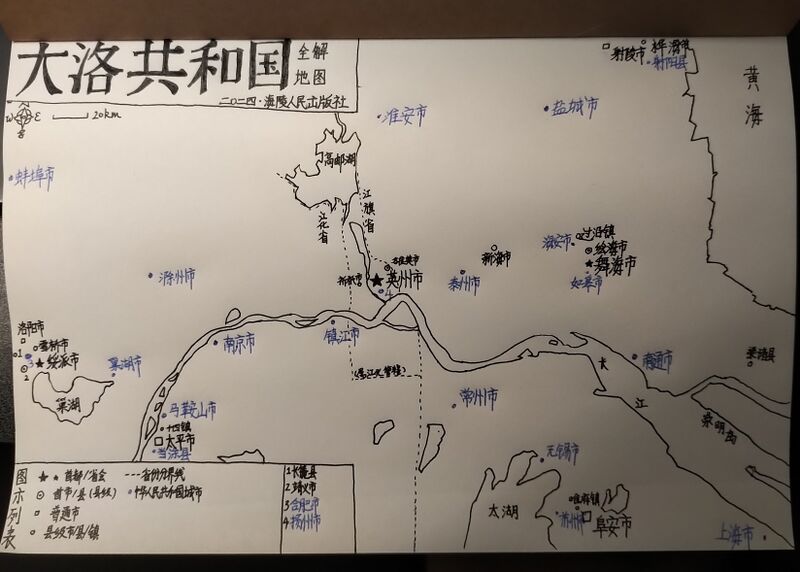 大洛共和国
全解
地图
二〇二四·海陵人民出版社
W E
S
20km
射陵市
射阳县
黄海
淮安市
盐城市
高邮湖
蚌埠市
江化省
江旗省
过沼镇
海安市
绘海市
舞海市
如皋市
新海市
英州市
4
泰州市
滁州市
洛阳市
雪桥市
1
3
绥派市
2
巢湖市
巢湖
南京市
镇江市
南通市
长江
崇明岛
常州市
马鞍山市
十四镇
太平市
当涂县
无锡市
太湖
唯府镇
苏州市
阜安市
上海市
图示列表
首都/省会
省份分界线
首市/县(县级)
中华人民共和国城市
普通市
县级市/县/镇
1 长薇县
2 靖义市
3 合肥市
4 扬州市